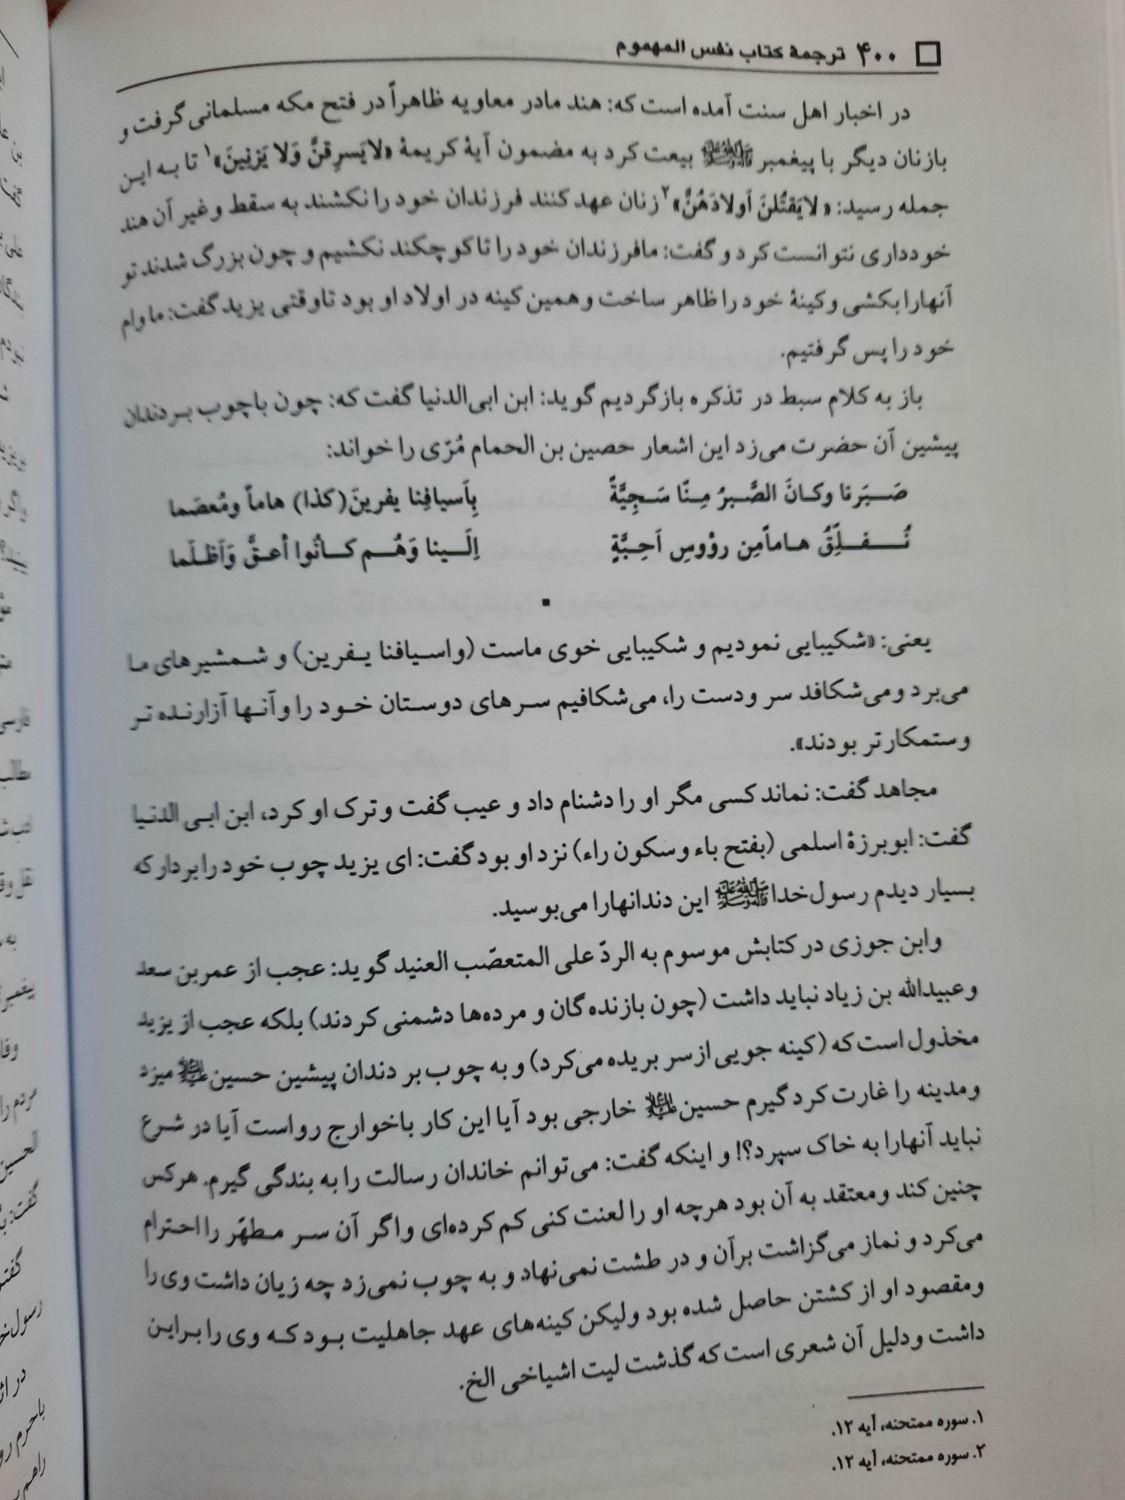 ۴۰۰ ترجمهٔ کتاب نفس المهموم
در اخبار اهل سنت آمده است که: هند مادر معاویه ظاهراً در فتح مکه مسلمانی گرفت و
بازنان دیگر با پیغمبر صلی الله علیه وآله وسلم بیعت کرد به مضمون آیهٔ کریمهٔ «لایَسرِقنَّ وَلا یَزنِینَ»۱ تا به این
جمله رسید: «لایَقتُلنَ اَولادَهُنَّ»۲ زنان عهد کنند فرزندان خود را نکشند به سقط و غیر آن هند
خودداری نتوانست کرد و گفت: مافرزندان خود را تاکوچکند نکشیم و چون بزرگ شدند تو
آنهارا بکشی و کینهٔ خود را ظاهر ساخت و همین کینه در اولاد او بود تاوقتی یزید گفت: ما وام
خود را پس گرفتیم.
باز به کلام سبط در تذکره بازگردیم گوید: ابن ابی‌الدنیا گفت که: چون باچوب بردندان
پیشین آن حضرت می‌زد این اشعار حصین بن الحمام مُرّی را خواند:
صَبَرنا وکانَ الصَّبرُ مِنّا سَجِیَّةً بِاَسیافِنا یفرینَ (کذا) هاماً ومُعصَما
نُفلِّقُ هاماًمِن رؤوسِ اَحِبَّةٍ اِلَینا وَهُم کانُوا أعقَّ وَاَظلَما
یعنی: «شکیبایی نمودیم و شکیبایی خوی ماست (واسیافنا یفرین) و شمشیرهای ما
می‌برد و می‌شکافد سر ودست را، می‌شکافیم سرهای دوستان خود را وآنها آزارنده تر
وستمکارتر بودند».
مجاهد گفت: نماند کسی مگر او را دشنام داد و عیب گفت و ترک او کرد، ابن ابی الدنیا
گفت: ابوبرزهٔ اسلمی (بفتح باء وسکون راء) نزد او بود گفت: ای یزید چوب خود را بردار که
بسیار دیدم رسول‌خدا صلی الله علیه وآله وسلم این دندانهارا می‌بوسید.
وابن جوزی در کتابش موسوم به الردّ علی المتعصّب العنید گوید: عجب از عمربن سعد
وعبیدالله بن زیاد نباید داشت (چون بازنده گان و مرده‌ها دشمنی کردند) بلکه عجب از یزید
مخذول است که (کینه جویی از سر بریده می‌کرد) و به چوب بر دندان پیشین حسین علیه السلام میزد
ومدینه را غارت کرد گیرم حسین علیه السلام خارجی بود آیا این کار باخوارج رواست آیا در شرع
نباید آنهارا به خاک سپرد؟! و اینکه گفت: می‌توانم خاندان رسالت را به بندگی گیرم. هرکس
چنین کند ومعتقد به آن بود هرچه او را لعنت کنی کم کرده‌ای واگر آن سر مطهّر را احترام
می‌کرد و نماز می‌گزاشت برآن و در طشت نمی‌نهاد و به چوب نمی‌زد چه زیان داشت وی را
ومقصود او از کشتن حاصل شده بود ولیکن کینه‌های عهد جاهلیت بود که وی را براین
داشت و دلیل آن شعری است که گذشت لیت اشیاخی الخ.
۱. سوره ممتحنه، آیه ۱۲.
۲. سوره ممتحنه، آیه ۱۲.